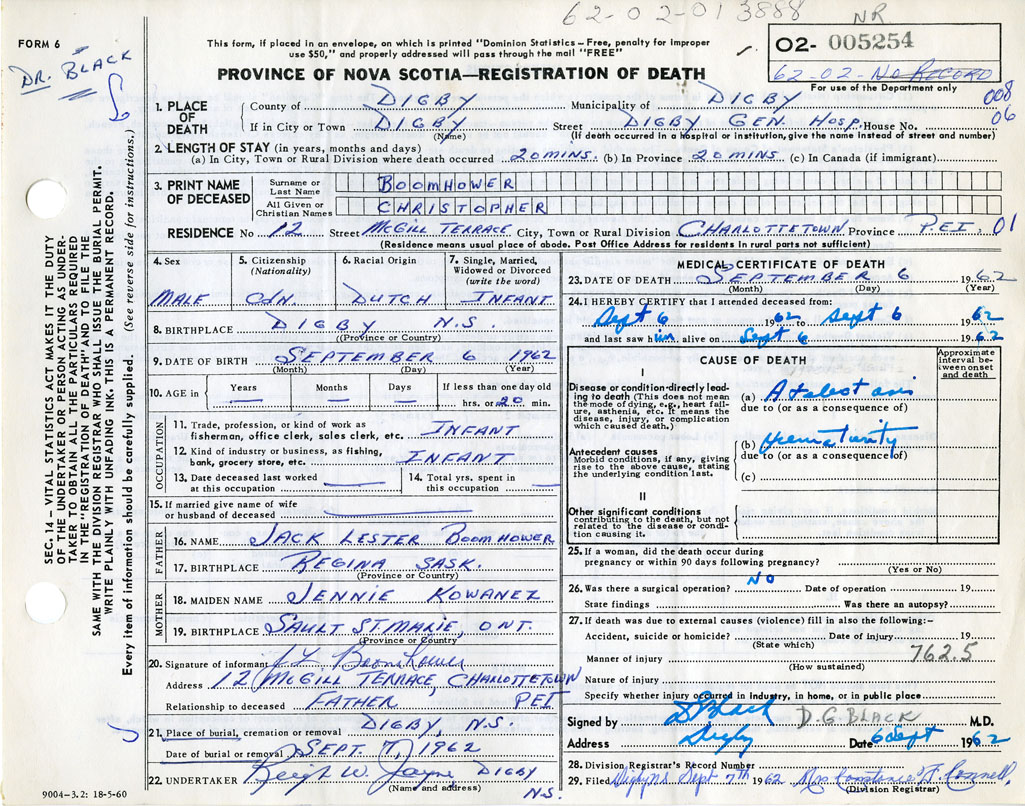 62-02-01 3888 NR
FORM 6
DR. BLACK
This form, if placed in an envelope, on which is printed "Dominion Statistics – Free, penalty for improper
use $50," and properly addressed will pass through the mail "FREE"
PROVINCE OF NOVA SCOTIA—REGISTRATION OF DEATH
02- 005254
62-02-No RECORD
For use of the Department only
008
06
1. PLACE OF DEATH
County of DIGBY Municipality of DIGBY
If in City or Town DIGBY Street DIGBY GEN. HOSP. House No.
(Name) (If death occurred in a hospital or institution, give the name instead of street and number)
2. LENGTH OF STAY (in years, months and days)
(a) In City, Town or Rural Division where death occurred 20 MINS. (b) In Province 20 MINS. (c) In Canada (if immigrant)
3. PRINT NAME OF DECEASED
Surname or Last Name BOOMHOWER
All Given or Christian Names CHRISTOPHER
RESIDENCE No 12 Street McGILL TERRACE City, Town or Rural Division CHARLOTTETOWN Province P.E.I. 01
(Residence means usual place of abode. Post Office Address for residents in rural parts not sufficient)
4. Sex MALE
5. Citizenship (Nationality) CDN.
6. Racial Origin DUTCH
7. Single, Married, Widowed or Divorced (write the word) INFANT
8. BIRTHPLACE DIGBY N.S.
(Province or Country)
9. DATE OF BIRTH SEPTEMBER 6 1962
(Month) (Day) (Year)
10. AGE in Years Months Days If less than one day old
hrs. or 20 min.
OCCUPATION
11. Trade, profession, or kind of work as
fisherman, office clerk, sales clerk, etc. INFANT
12. Kind of industry or business, as fishing,
bank, grocery store, etc. INFANT
13. Date deceased last worked
at this occupation
14. Total yrs. spent in
this occupation
15. If married give name of wife
or husband of deceased
FATHER
16. NAME JACK LESTER BOOMHOWER
17. BIRTHPLACE REGINA SASK.
(Province or Country)
MOTHER
18. MAIDEN NAME JENNIE KOWANEZ
19. BIRTHPLACE SAULT ST. MARIE, ONT.
(Province or Country)
20. Signature of informant JL Boomhower
Address 12 McGILL TERRACE, CHARLOTTETOWN
Relationship to deceased FATHER PEI
21. Place of burial, cremation or removal DIGBY, N.S.
Date of burial or removal SEPT. 7, 1962
22. UNDERTAKER W. Jayne DIGBY
(Name and address) N.S.
9004–3.2: 18-5-60
MEDICAL CERTIFICATE OF DEATH
23. DATE OF DEATH SEPTEMBER 6 1962
(Month) (Day) (Year)
24. I HEREBY CERTIFY that I attended deceased from:
Sept 6 1962 to Sept 6 1962
and last saw him alive on Sept 6 1962
CAUSE OF DEATH
Approximate interval between onset and death
I
Disease or condition-directly leading to death (This does not mean
the mode of dying, e.g., heart failure, asthenia, etc. It means the
disease, injury, or complication
which caused death.)
(a) Atelectasis
due to (or as a consequence of)
Antecedent causes
Morbid conditions, if any, giving
rise to the above cause, stating
the underlying condition last.
(b) Prematurity
due to (or as a consequence of)
(c)
II
Other significant conditions
contributing to the death, but not
related to the disease or condition causing it.
25. If a woman, did the death occur during
pregnancy or within 90 days following pregnancy?
(Yes or No)
26. Was there a surgical operation? NO Date of operation 19
State findings Was there an autopsy?
27. If death was due to external causes (violence) fill in also the following:–
Accident, suicide or homicide? Date of injury 19
(State which)
Manner of injury 762.5
(How sustained)
Nature of injury
Specify whether injury occurred in industry, in home, or in public place
Signed by D Black D.G. BLACK M.D.
Address Digby Date 6 Sept 1962
28. Division Registrar's Record Number
29. Filed Digby NS Sept 7th 1962 Mrs Constance F. Connell
(Division Registrar)
SEC. 14 – VITAL STATISTICS ACT MAKES IT THE DUTY
OF THE UNDERTAKER OR PERSON ACTING AS UNDER-
TAKER TO OBTAIN ALL THE PARTICULARS REQUIRED
IN THE "REGISTRATION OF DEATH" AND TO FILE THE
SAME WITH THE DIVISION REGISTRAR WHO SHALL ISSUE THE BURIAL PERMIT.
WRITE PLAINLY WITH UNFADING INK. THIS IS A PERMANENT RECORD.
Every item of information should be carefully supplied. (See reverse side for instructions.)